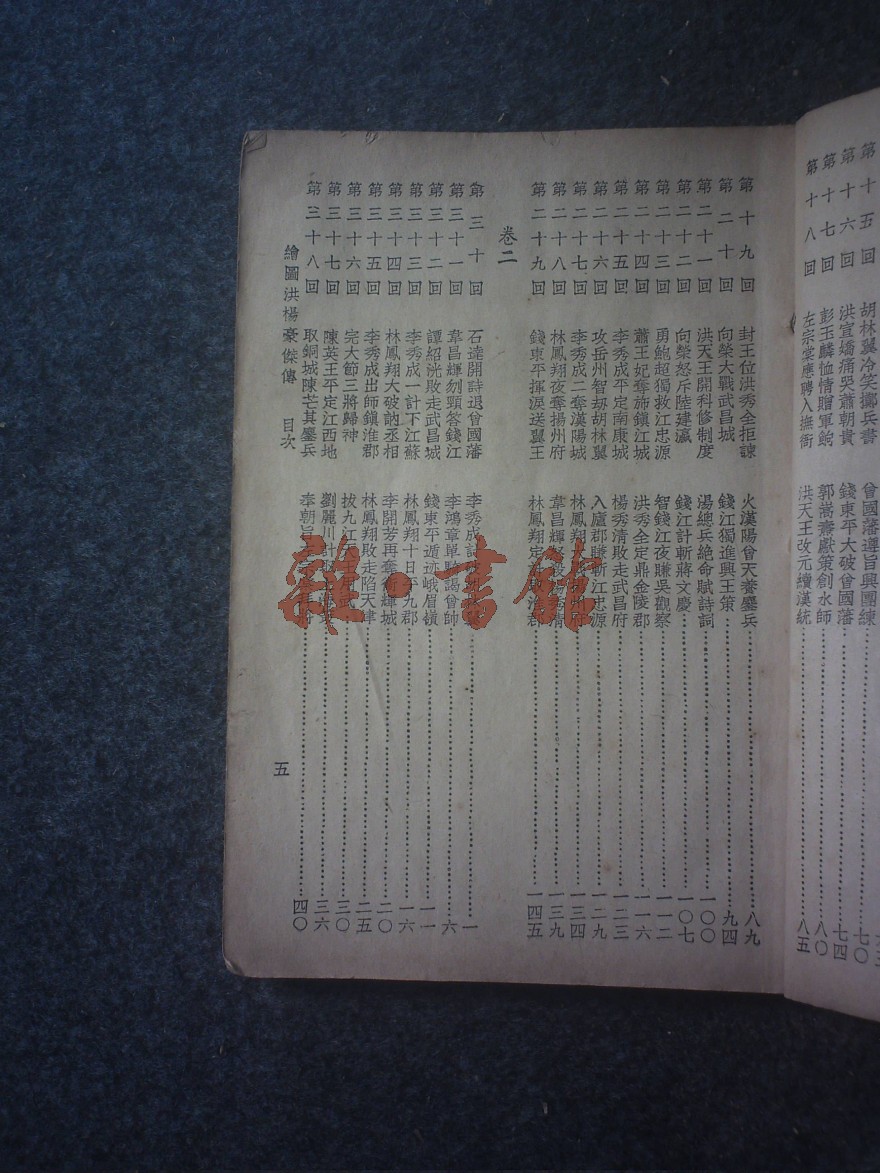 第十五回 胡林翼冷笑擲兵書 曾國藩遵旨興團練
第十六回 洪宣嬌痛哭蕭朝貴 錢東平大破曾國藩 七〇
第十七回 彭玉麟恤情贈軍餉 郭嵩燾獻策創水師 七四
第十八回 左宗棠應聘入撫衙 洪天王改元續漢統 八五
第十九回 封王位洪秀全拒諫 火漢陽曾天養鏖兵 八九
第二十回 向榮大戰武昌城 錢江獨進興王策 九四
第二十一回 洪天王開科修制度 湯總兵絕命賦詩詞 一〇〇
第二十二回 向榮怒斥陸建瀛 錢江計斬蔣文慶 一〇七
第二十三回 勇鮑超獨救江忠源 智錢江夜賺吳觀察 一一二
第二十四回 蕭王妃奪旆鎮江城 洪秀全定鼎金陵郡 一一六
第二十五回 李秀成平定南康城 楊秀清敗走武昌府 一二三
第二十六回 攻岳州智劫胡林翼 入廬郡賺斬江忠源 一二九
第二十七回 李秀成二奪漢陽城 林鳳翔 一三四
第二十八回 林鳳翔夜奪揚州府 韋昌輝 一三九
第二十九回 錢東平揮淚送翼王 林鳳翔定 一四五
卷二
第三十回 石達開詩退曾國藩 李秀成 一
第三十一回 韋昌輝刎頸答錢江 李鴻章單騎謁曾帥 六
第三十二回 譚紹洸敗走武昌城 錢東平遁迹峨眉嶺 一一
第三十三回 李秀成一計下江蘇 林鳳翔十日平九郡 一六
第三十四回 林鳳翔大破訥丞相 李開芳再奪衛輝城 二〇
第三十五回 李秀成出師鎮淮郡 林鳳翔敗走陷天津 二五
第三十六回 完大節三將歸神 拔九江天王用武 三〇
第三十七回 陳英王平定江西地 劉麗川計 三六
第三十八回 取銅城陳芒其鏖兵 奉朝旨 四〇
繪圖洪楊豪傑傳 目次 五
雜·書館